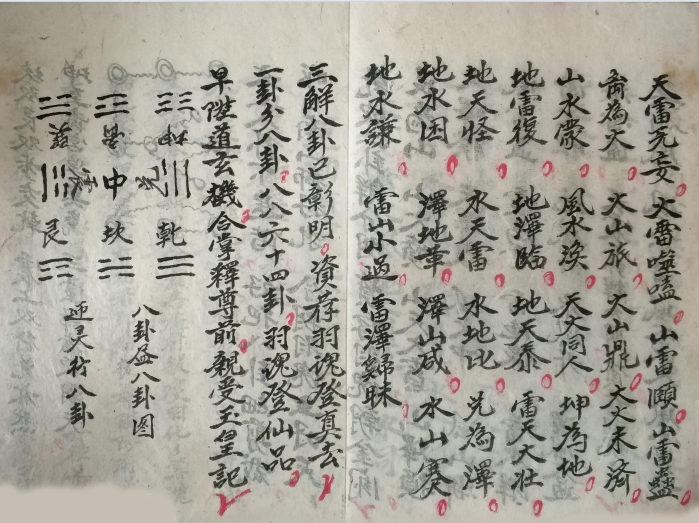 天雷无妄 火雷噬嗑 山雷頤 山雷蠱
為火 火山旅 火山鼎 火火未済
山水蒙 風水渙 天火同人 坤為地
地雷復 地澤臨 地天泰 雷天大壮
地天怪 水天雷 水地比 兑為澤
地水困 澤地萃 澤山咸 水山蹇
地水謙 雷山小過 雷澤歸昧
三解八卦已彰明 資荐羽魂登真去
一卦分八卦 八八六十四卦 羽魂登仙品
早陞道玄機 合掌釋尊前 親受玉皇記
坤 乾
中 坎
巽 艮
八卦盆八卦图
迎灵行八卦